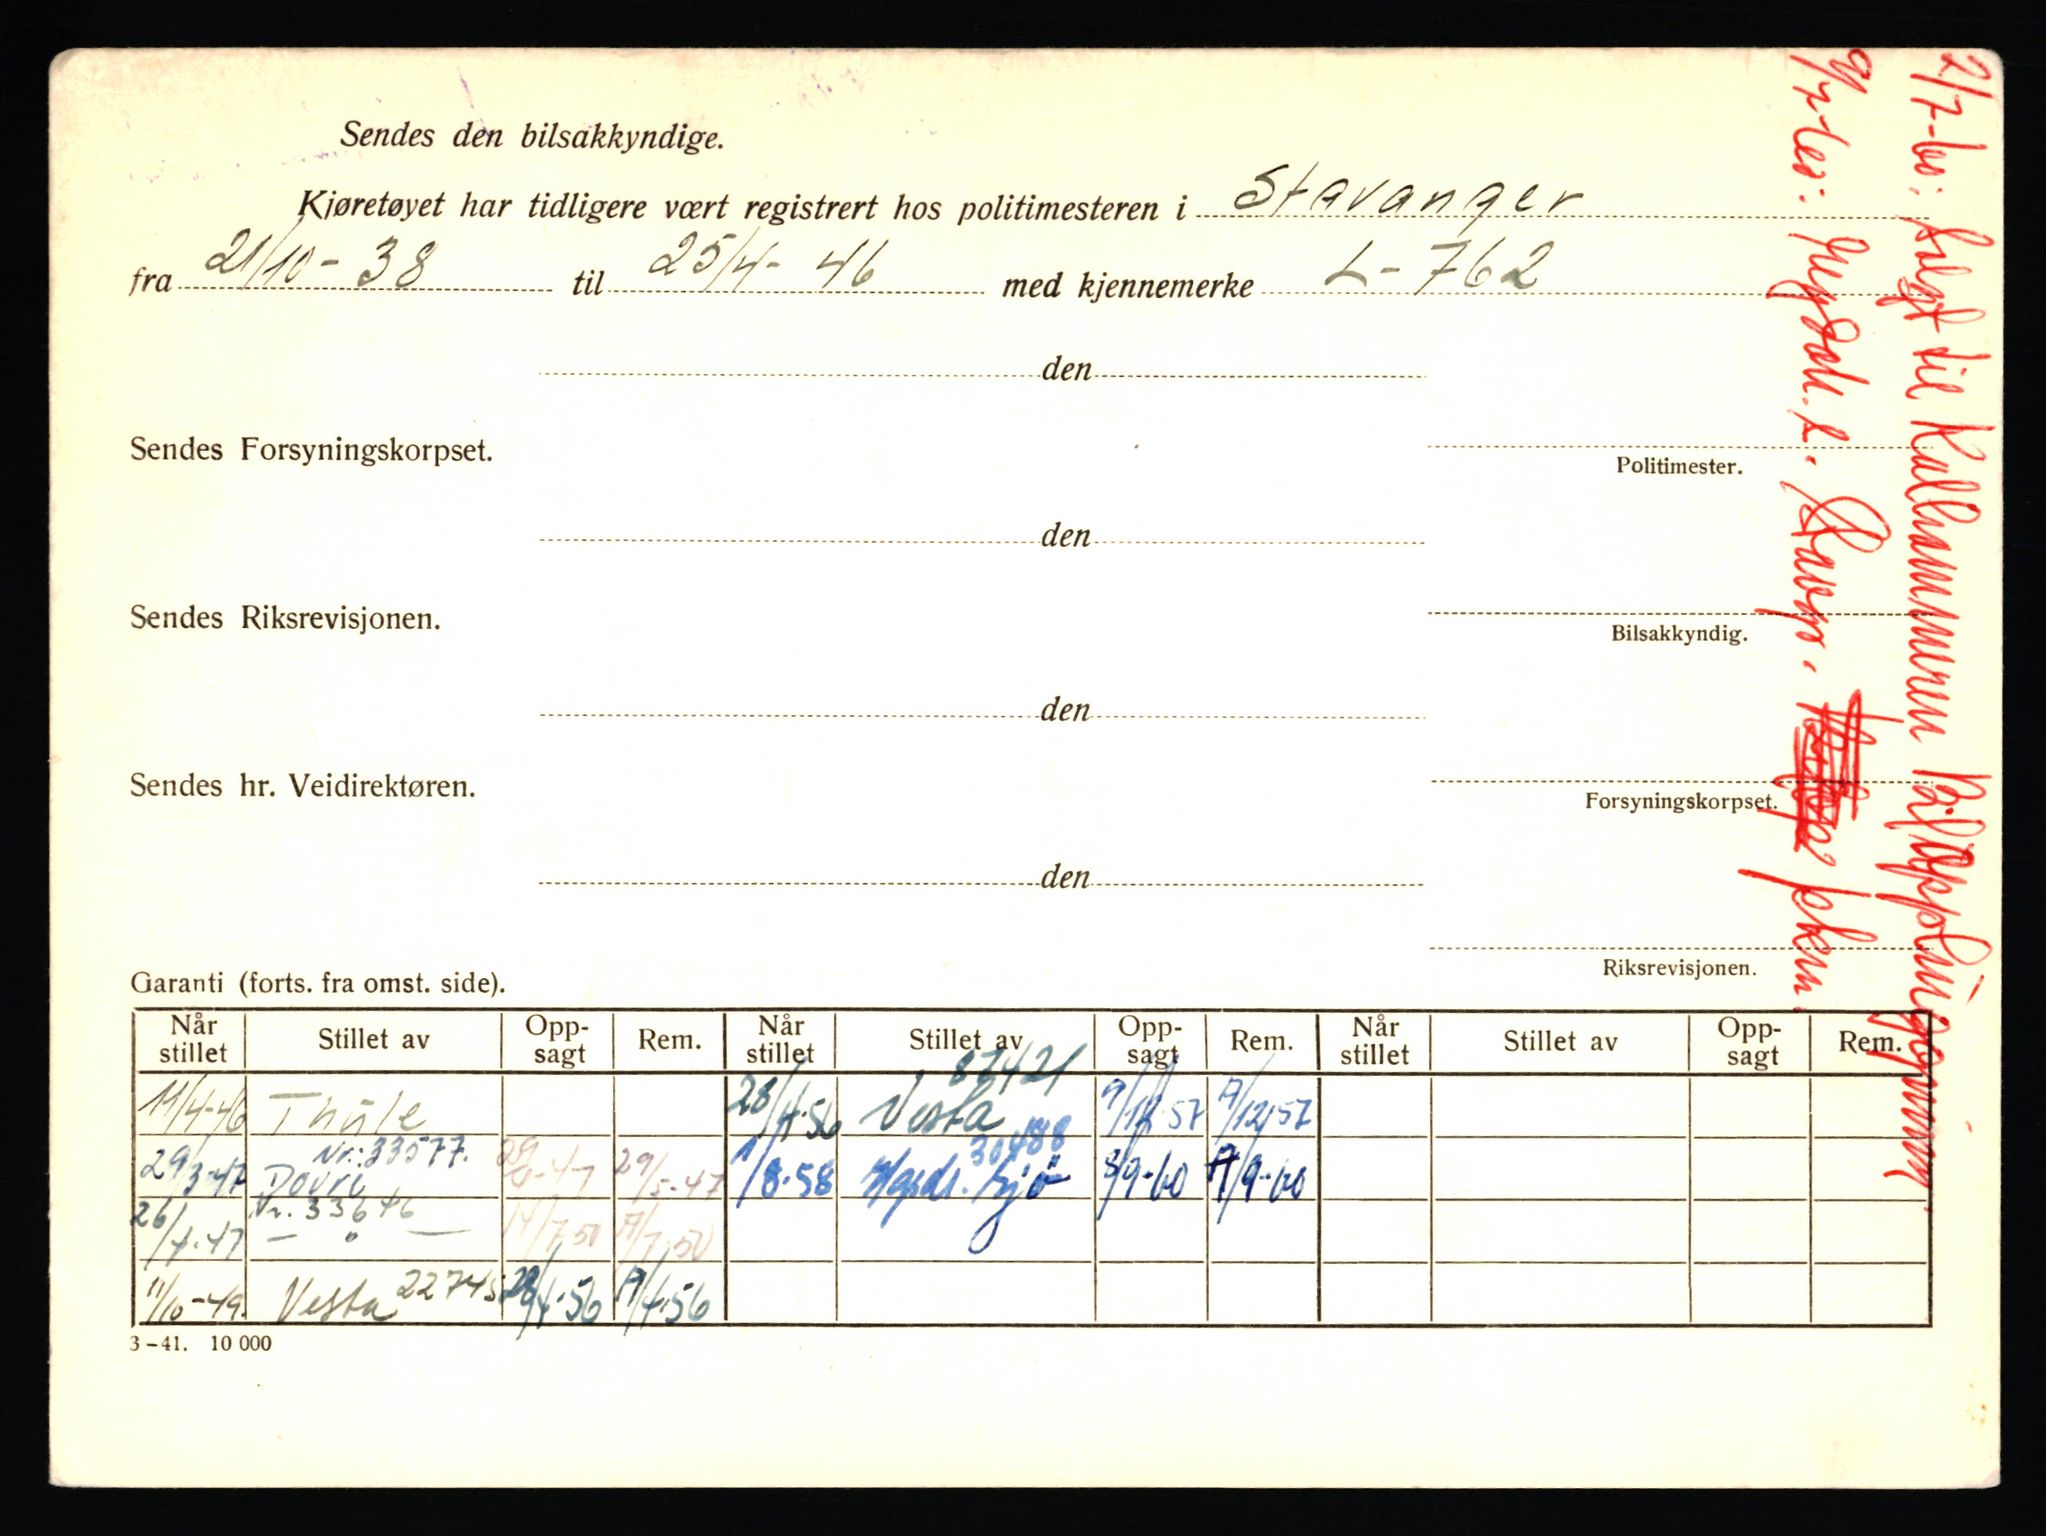 Sendes den bilsakkyndige.
Kjøretøyet har tidligere vært registrert hos politimesteren i Stavanger
fra 21/10-38 til 25/4-46 med kjennemerke L-762
den
Sendes Forsyningskorpset.
Politimester.
den
Sendes Riksrevisjonen.
Bilsakkyndig.
den
Sendes hr. Veidirektøren.
Forsyningskorpset.
den
Riksrevisjonen.
Garanti (forts. fra omst. side).
Når stillet Stillet av Opp-sagt Rem. Når stillet Stillet av Opp-sagt Rem. Når stillet Stillet av Opp-sagt Rem.
11/4-46 Thule 28/4-56 Vesta 87421 /12-57 /12-57
29/3-47 Nr.: 33577. Dovre 29/5-47 1/8-58 30488 8/9-60 /9-60
26/4-47 Nr. 33646 — " — 14/7-50 /7-50
11/10-49. Vesta 22745 28/4-56 /4-56
3-41. 10 000
2/7-60: Solgt til Kallhammeren Bilopphuggning
9/7-60: Stavgr.